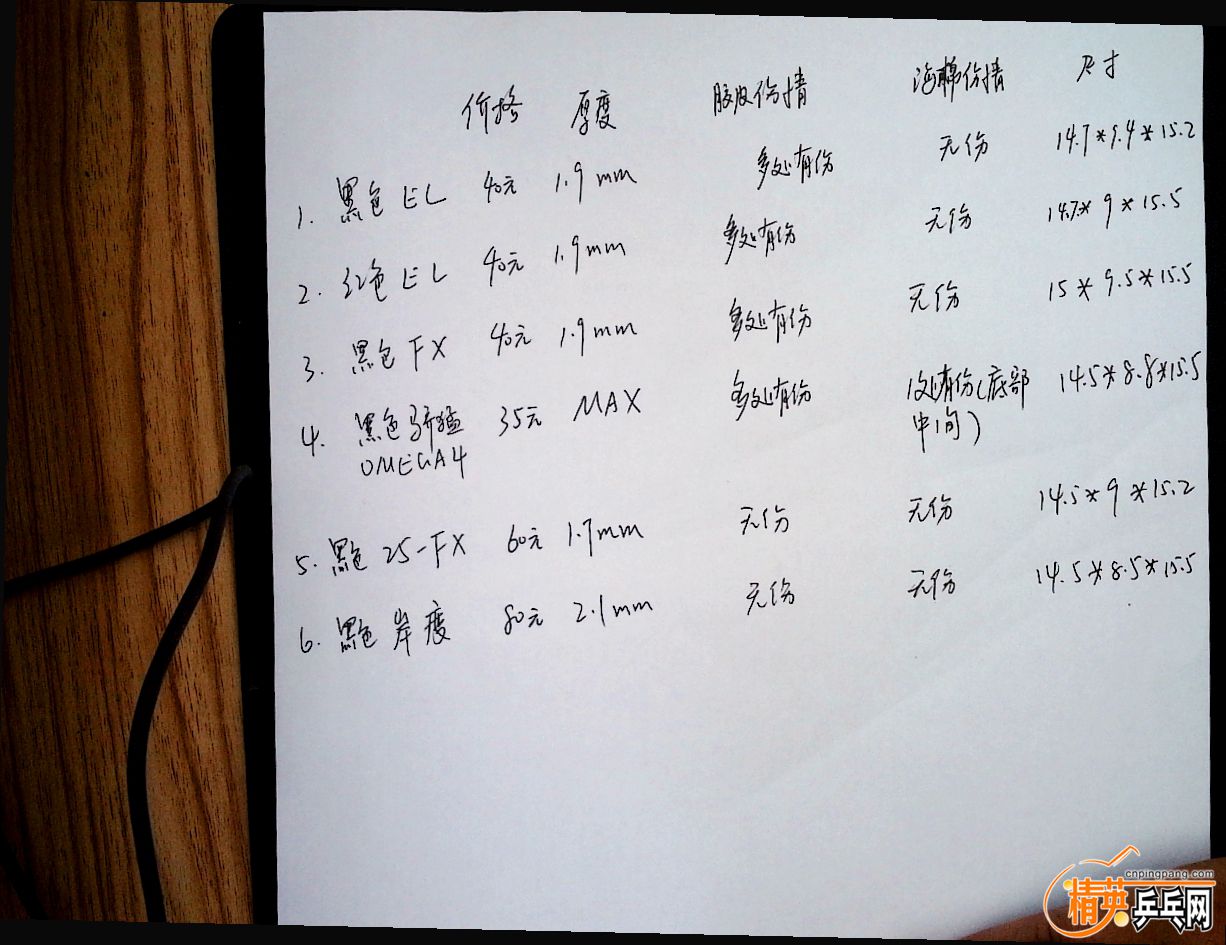 价格 厚度 胶皮伤情 海棉伤情 尺寸
1. 黑色 EL 40元 1.9mm 多处有伤 无伤 14.7*9.4*15.2
2. 红色 EL 40元 1.9mm 多处有伤 无伤 14.7*9*15.5
3. 黑色 FX 40元 1.9mm 多处有伤 无伤 15*9.5*15.5
4. 黑色骄猛 35元 MAX 多处有伤 1处有伤(底部 14.5*8.8*15.5
OMEGA4 中间)
5. 黑色 25-FX 60元 1.7mm 无伤 无伤 14.5*9*15.2
6. 黑色 岸度 80元 2.1mm 无伤 无伤 14.5*8.5*15.5
cnpingpang.com
精英乒乓网